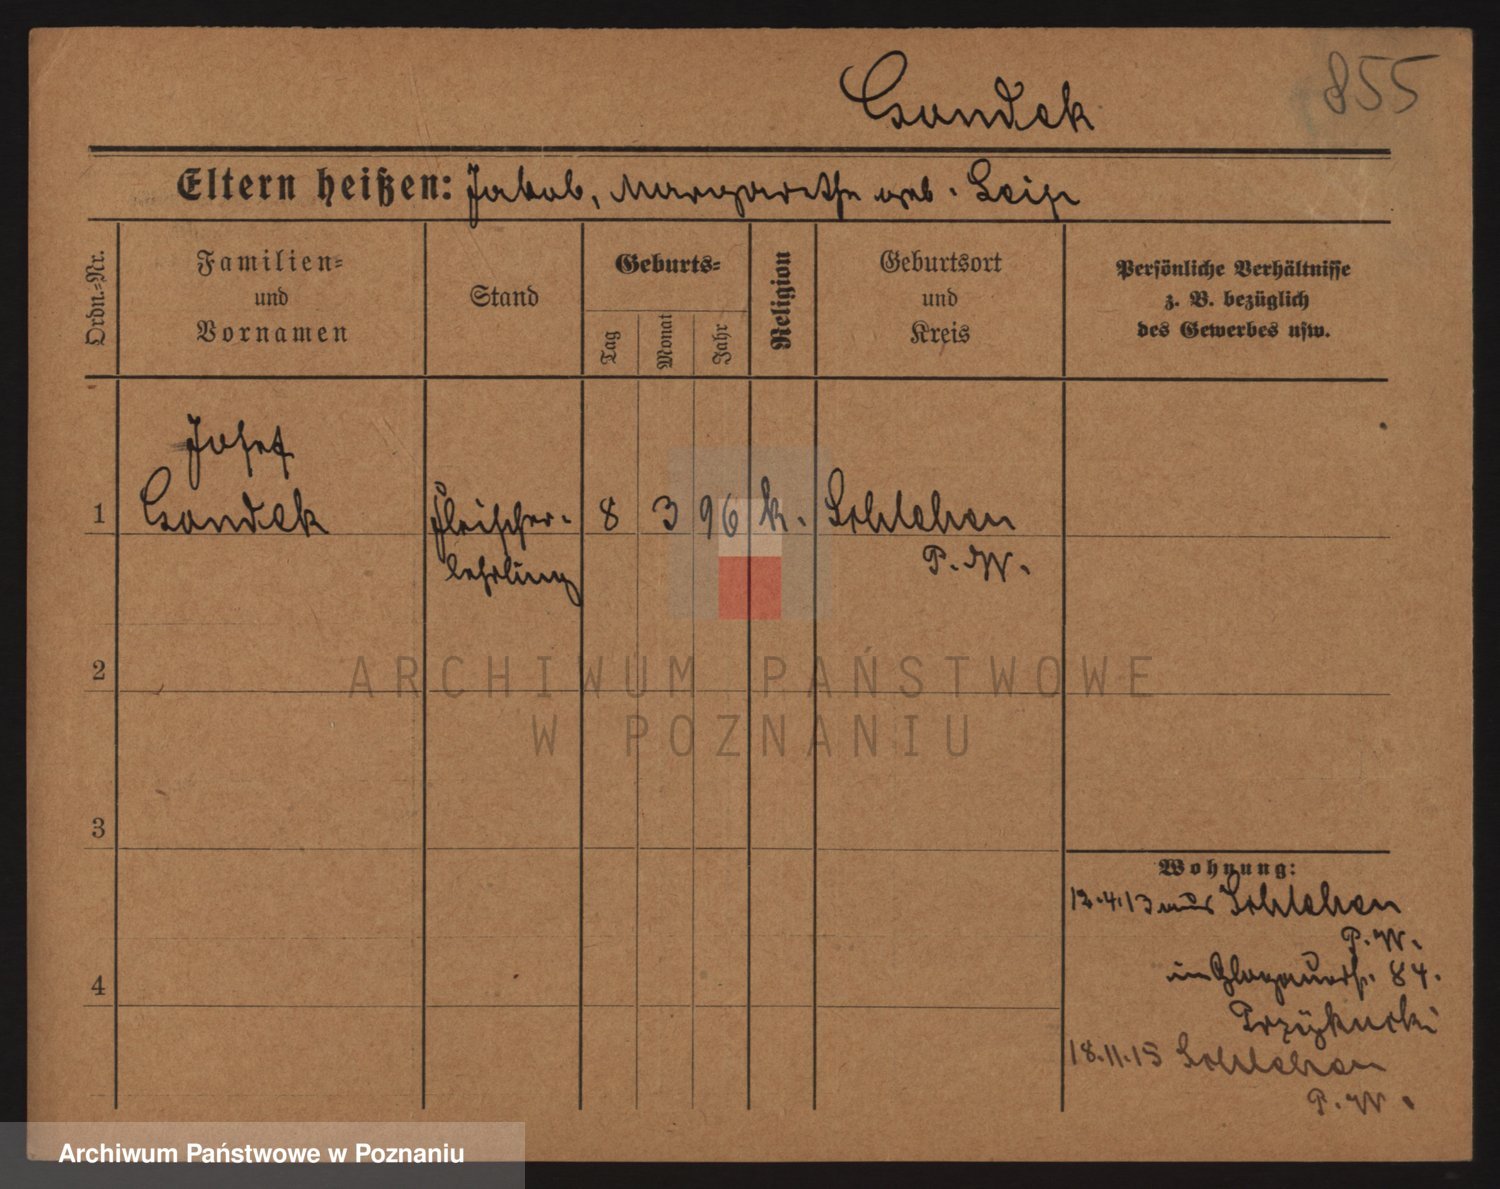 855
Eltern heißen: Jakob, Margarethe geb.
Ordn.-Nr.
Familien-
und
Vornamen
Stand
Geburts-
Tag
Monat
Jahr
Religion
Geburtsort
und
Kreis
Persönliche Verhältnisse
z. B. bezüglich
des Gewerbes usw.
Josef
1 Fleischer- 8 3 96 k. Schlehen
lehrling P. W.
2
3
4
Wohnung:
12.4.13 aus Schlehen
P. W.
in Glogauerstr. 84.
18.11.15 Schlehen
P. W.
ARCHIWUM PAŃSTWOWE
W POZNANIU
Archiwum Państwowe w Poznaniu